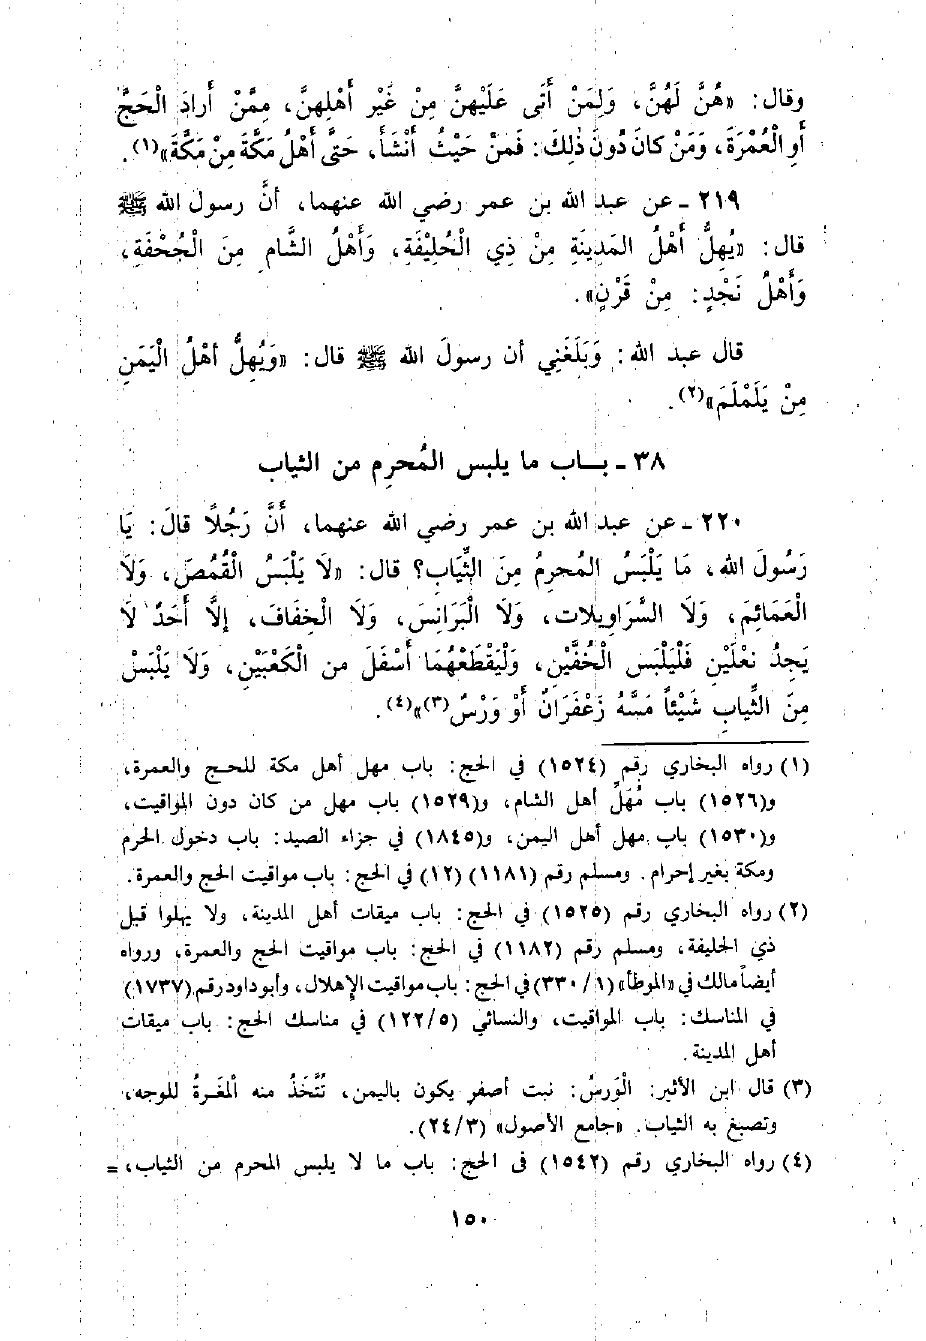 وقال: «هُنَّ لَهُنَّ، وَلِمَنْ أَتَى عَلَيْهِنَّ مِنْ غَيْرِ أَهْلِهِنَّ، مِمَّنْ أَرادَ الْحَجَّ
أَوِ الْعُمْرَةَ، وَمَنْ كانَ دُونَ ذٰلِكَ: فَمنْ حَيْثُ أَنْشَأَ، حَتَّى أَهْلُ مَكَّةَ مِنْ مَكَّةَ»(١).
٢١٩ ـ عن عبد الله بن عمر رضي الله عنهما، أنَّ رسول الله ﷺ
قال: «يُهِلُّ أَهْلُ المَدِينَةِ مِنْ ذِي الْحُلِيْفَةِ، وَأَهْلُ الشَّامِ مِنَ الْجُحْفَةِ،
وَأَهْلُ نَجْدٍ: مِنْ قَرْنٍ».
قال عبد الله: وَبَلَغَنِي أن رسولَ الله ﷺ قال: «وَيُهِلُّ أهْلُ الْيَمَنِ
مِنْ يَلَمْلَمَ»(٢).
٣٨ ـ بــاب ما يلبس المُحرِم من الثياب
٢٢٠ ـ عن عبد الله بن عمر رضي الله عنهما، أَنَّ رَجُلاً قالَ: يَا
رَسُولَ الله، مَا يَلْبَسُ المُحرِمُ مِنَ الثِّيَاب؟ قال: «لَا يَلْبَسُ الْقُمُصَ، وَلَا
الْعَمَائِمَ، وَلَا السَّرَاوِيلات، وَلَا الْبَرَانِسَ، وَلَا الْخِفَافَ، إلَّا أَحَدٌ لَا
يَجِدُ نعْلَيْنِ فَلْيَلْبَسِ الْخُفَّيْنِ، وَلْيَقْطَعْهُمَا أَسْفَلَ من الْكَعْبَيْنِ، وَلَا يَلْبَسْ
مِنَ الثِّيابِ شَيْئاً مَسَّهُ زَعْفَرَانٌ أَوْ وَرْسٌ(٣)»(٤).
(١) رواه البخاري رقم (١٥٢٤) في الحج: باب مهل أهل مكة للحج والعمرة،
و(١٥٢٦) باب مُهَلِّ أهل الشام، و(١٥٢٩) باب مهل من كان دون المواقيت،
و(١٥٣٠) باب مهل أهل اليمن، و(١٨٤٥) في جزاء الصيد: باب دخول الحرم
ومكة بغير إحرام. ومسلم رقم (١١٨١) (١٢) في الحج: باب مواقيت الحج والعمرة.
(٢) رواه البخاري رقم (١٥٢٥) في الحج: باب ميقات أهل المدينة، ولا يهلوا قبل
ذي الحليفة، ومسلم رقم (١١٨٢) في الحج: باب مواقيت الحج والعمرة، ورواه
أيضاً مالك في «الموطأ» (١/ ٣٣٠) في الحج: باب مواقيت الإهلال، وأبو داود رقم (١٧٣٧)
في المناسك: باب المواقيت، والنسائي (٥/ ١٢٢) في مناسك الحج: باب ميقات
أهل المدينة.
(٣) قال ابن الأثير: الْوَرسُ: نبت أصفر يكون باليمن، تُتَّخَذُ منه الْمَغَرةُ للوجه،
وتصبغ به الثياب. «جامع الأصول» (٣/ ٢٤).
(٤) رواه البخاري رقم (١٥٤٢) في الحج: باب ما لا يلبس المحرم من الثياب، =
١٥٠